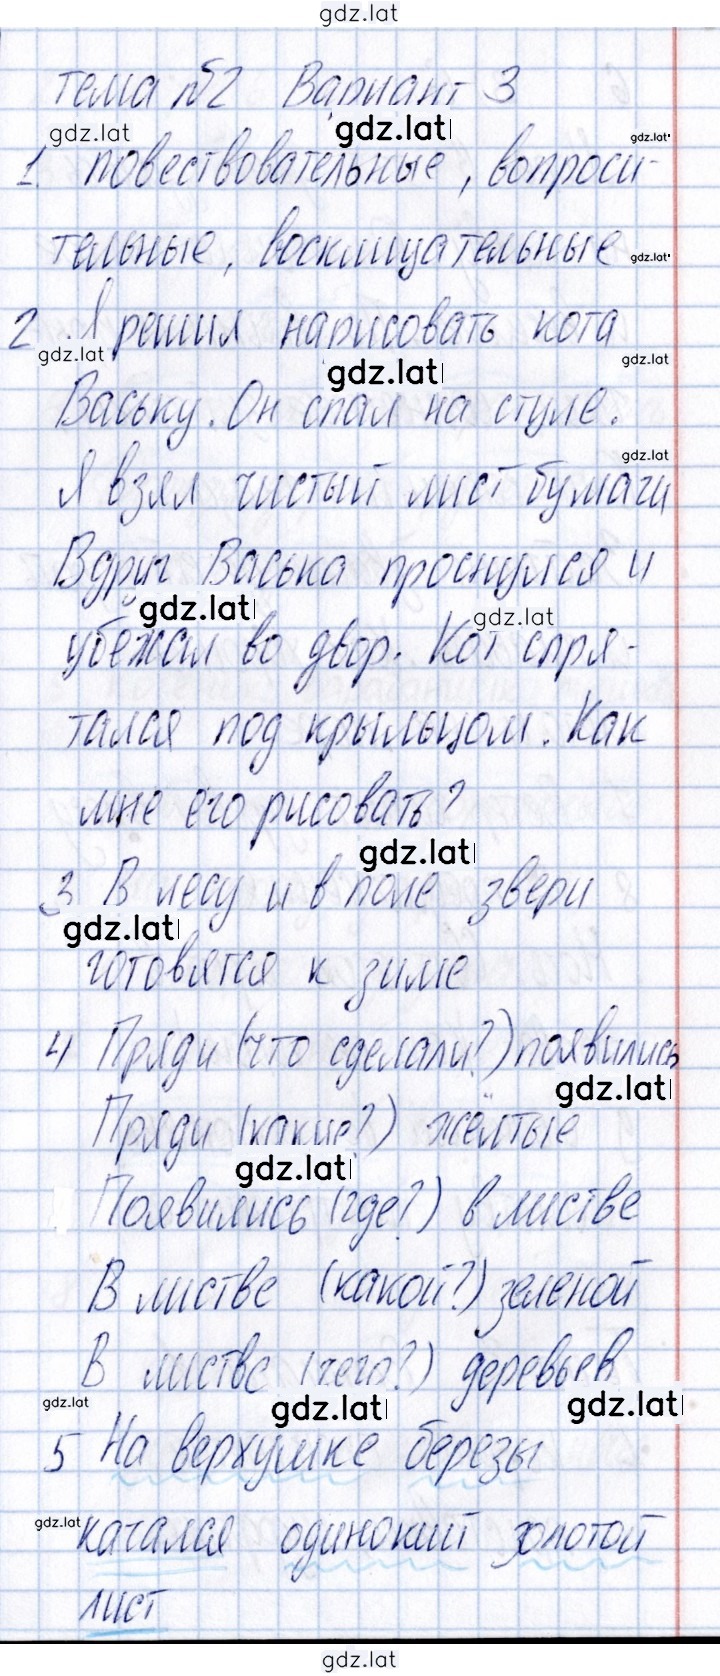 gdz.lat
Тема №2 Вариант 3
gdz.lat gdz.lat gdz.lat
1. повествовательные, вопроси-
тельные, восклицательные gdz.lat
2. Я решил нарисовать кота
gdz.lat gdz.lat gdz.lat
Ваську. Он спал на стуле.
gdz.lat
Я взял чистый лист бумаги
Вдруг Васька проснулся и
gdz.lat gdz.lat
убежал во двор. Кот спря-
тался под крыльцом. Как
мне его рисовать?
gdz.lat
3 В лесу и в поле звери
gdz.lat
готовятся к зиме
4 Пряди (что сделали?) появились
gdz.lat
Пряди (какие?) жёлтые
gdz.lat
Появились (где?) в листве
В листве (какой?) зеленой
В листве (чего?) деревьев
gdz.lat gdz.lat gdz.lat
5 На верхушке березы
gdz.lat качался одинокий золотой
лист
gdz.lat